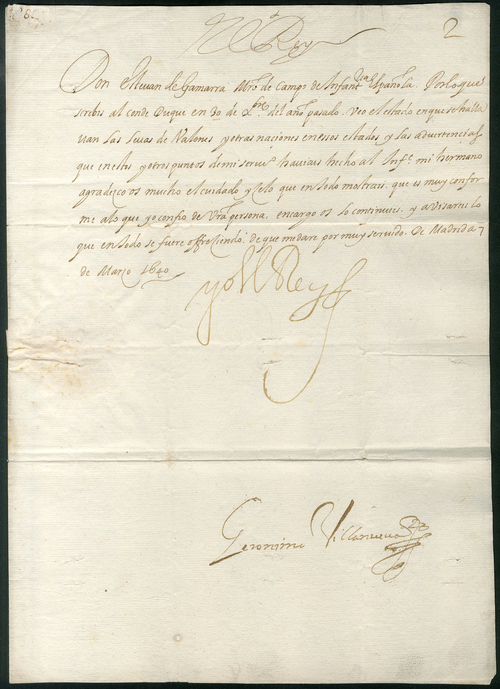 El Rey
2
Don Estevan de Gamarra Mro. de Campo de Infantria Española. Por lo que
screbis al conde Duque en 30 de Xbre. del año passado. Veo el estado en que se halla
van las levas de Valones y otras naciones en essos estados y las advertencias
que en esto y otros puntos de mi servio. haviais hecho al Infe. mi hermano
agradezco os mucho el cuidado y celo que en todo mostrais. que es muy confor
me a lo que yo confio de Vra. persona, encargo os lo continueis. y avisareis lo
que en todo se fuere offreciendo. de que me dare por muy servido. De Madrid a 7
de Março 1640
yo el Rey
Geronimo Villanueva